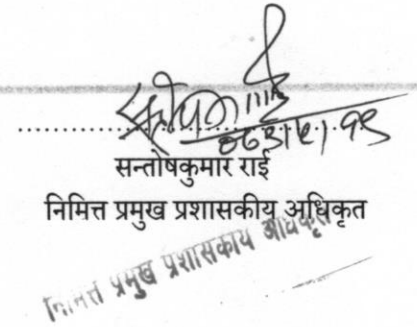 सन्तोषकुमार राई
निमित्त प्रमुख प्रशासकीय अधिकृत
निमित्त प्रमुख प्रशासकीय अधिकृत